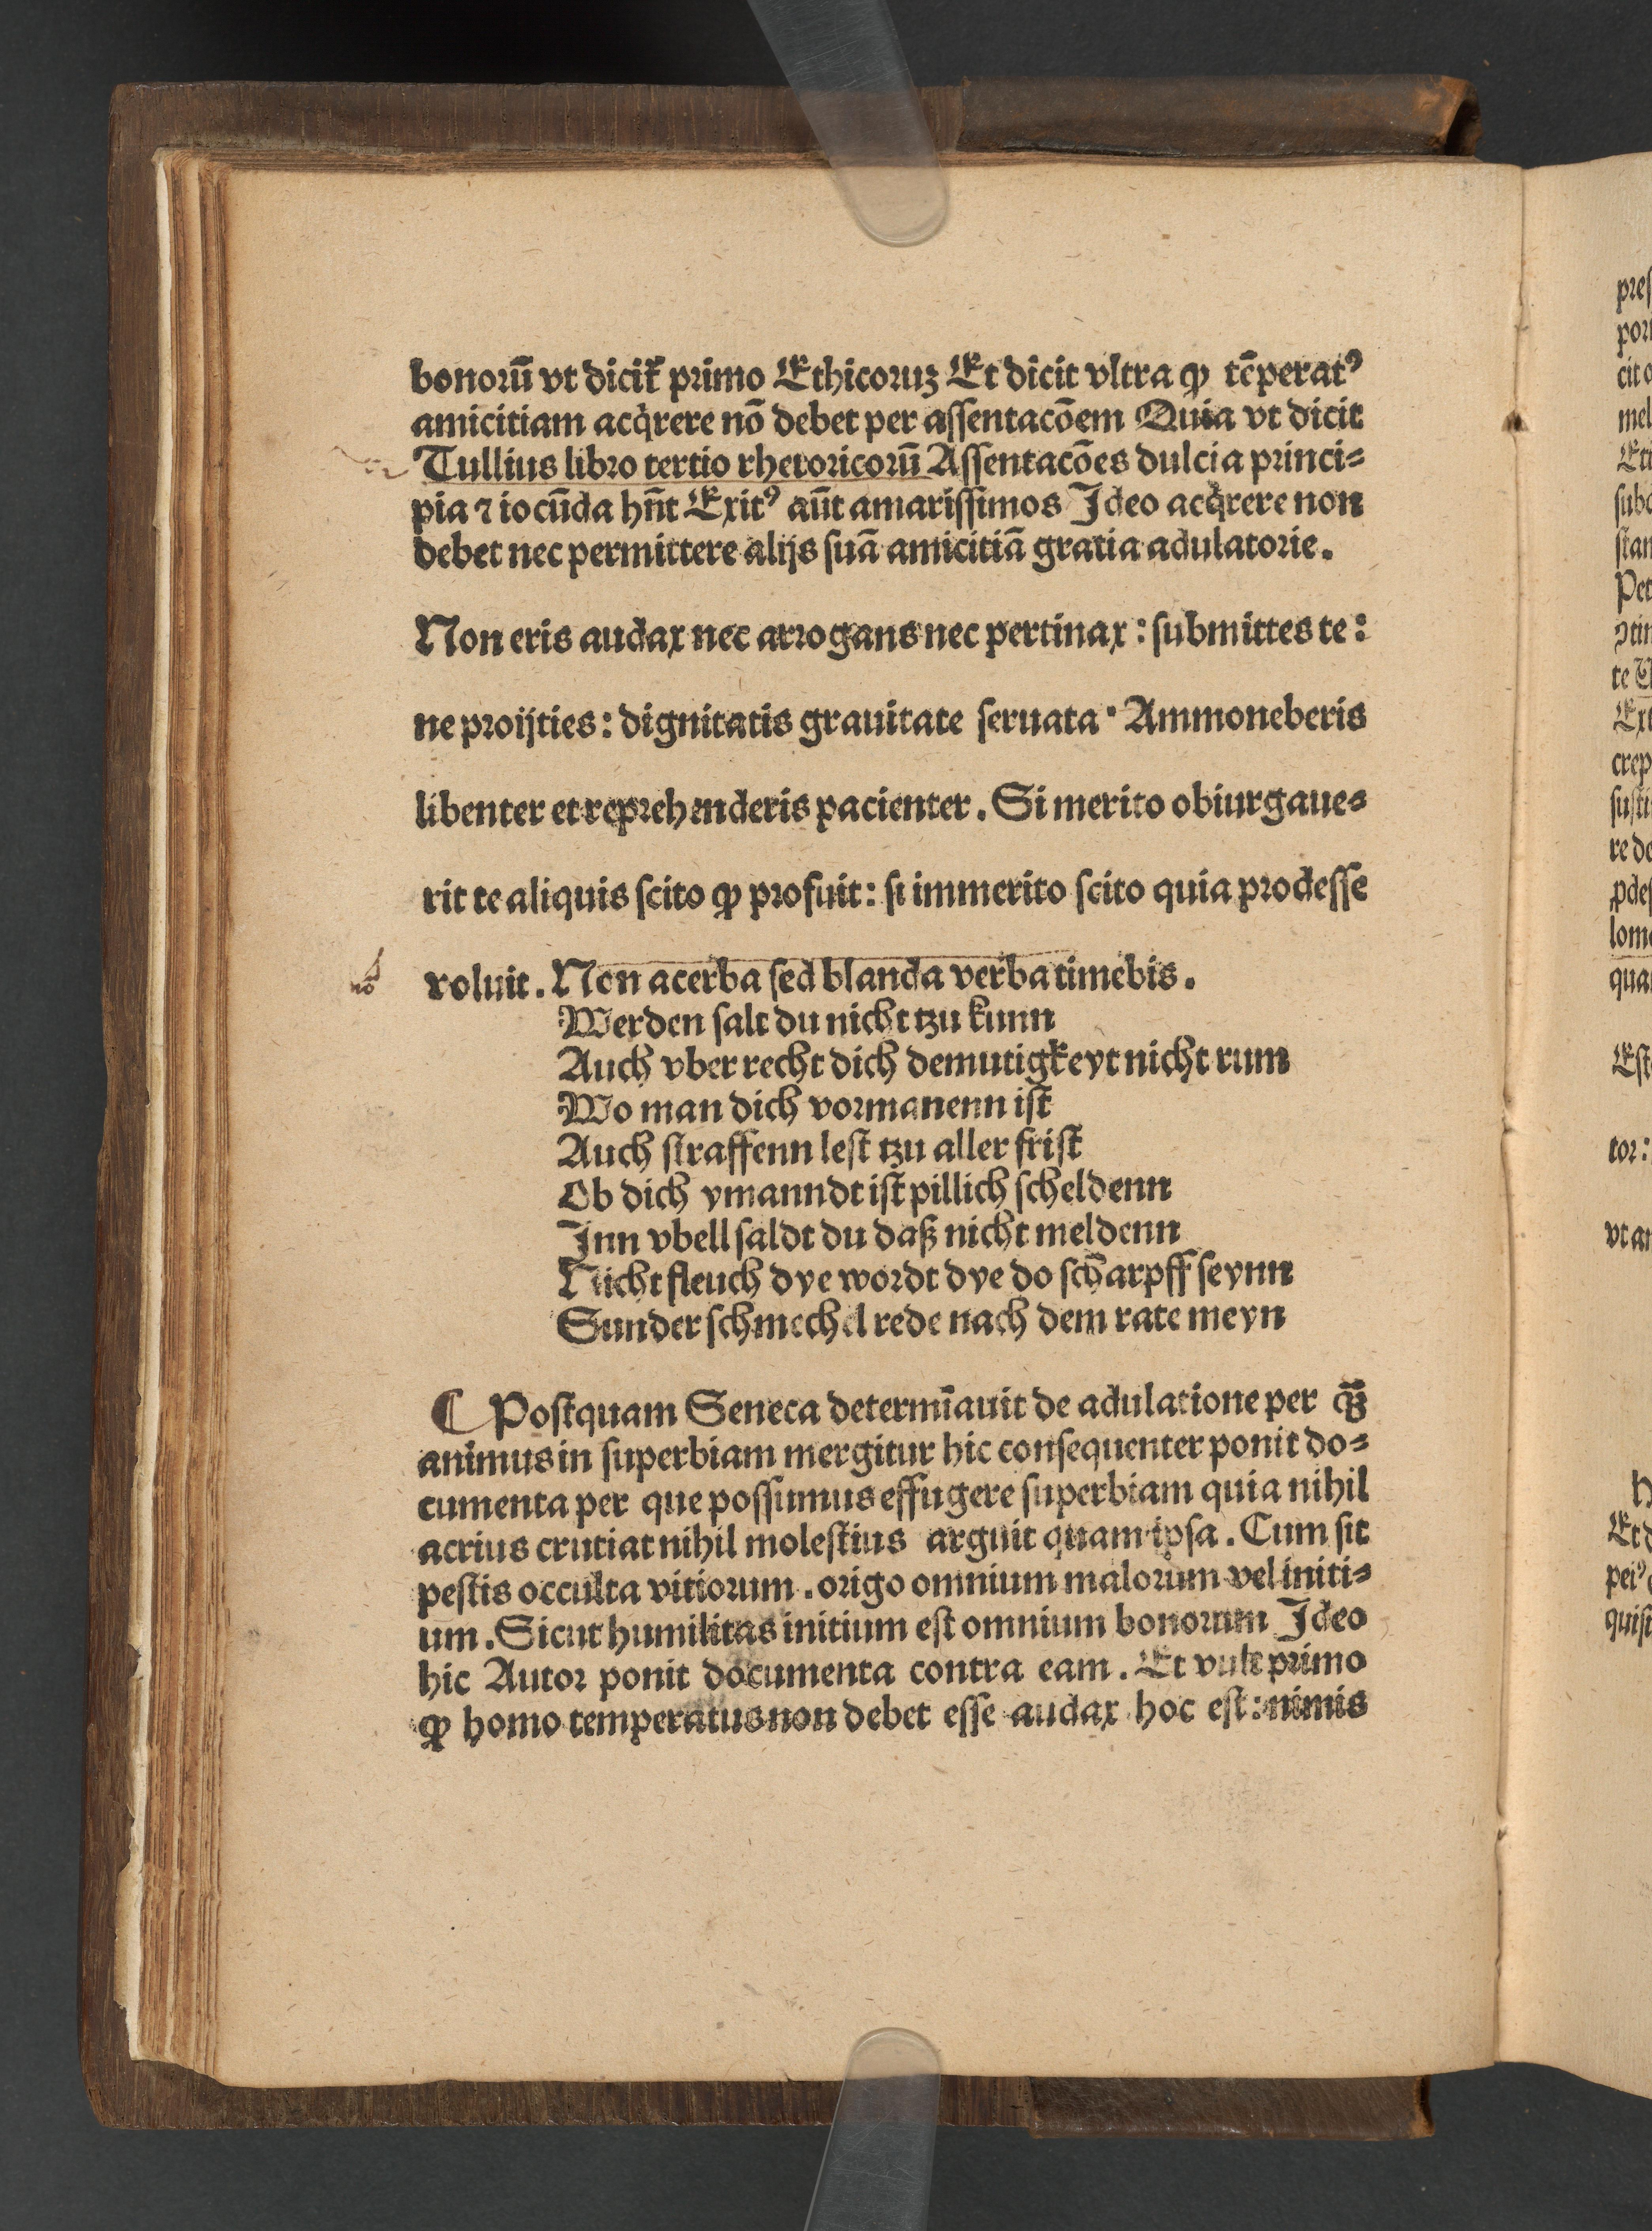 bonorū vt dicit᷑ primo Ethicoruꝫ Et dicit vltra ꝙ tēperatꝰ
amicitiam acq̇rere nō debet per aſſentacōem Quia vt dicit
Tullius libro tertio rhetoricorū Aſſentacōes dulcia princi⸗
pia ⁊ iocūda hn̄t Exitꝰ aūt amariſſimos Ideo acq̇rere non
debet nec permittere alijs ſuā amicitiā gratia adulatorie.
Non eris audax nec arrogans nec pertinax : ſubmittes te :
ne proijties : dignitatis grauitate ſeruata · Ammoneberis
libenter et reprehenderis pacienter. Si merito obiurgaue⸗
rit te aliquis ſcito ꝙ profuit : ſi immerito ſcito quia prodeſſe
voluit. Non acerba ſed blanda verba timebis.
Werden ſalt du nicht tzu kunn
Auch vber recht dich demutigkeyt nicht rum
Wo man dich vormanenn iſt
Auch ſtraffenn leſt tzu aller friſt
Ob dich ymanndt iſt pillich ſcheldenn
Inn vbell ſaldt du daß nicht meldenn
Nicht fleuch dye wordt dye do ſcharpff ſeynn
Sunder ſchmechel rede nach dem rate meyn
¶ Poſtquam Seneca determīauit de adulatione per
animus in ſuperbiam mergitur hic conſequenter ponit do⸗
cumenta per que poſſumus effugere ſuperbiam quia nihil
acrius crutiat nihil moleſtius arguit quam ipſa. Cum ſit
peſtis occulta vitiorum. origo omnium malorum vel initi⸗
um. Sicut humilitas initium eſt omnium bonorum Ideo
hic Autor ponit documenta contra eam. Et vult primo
ꝙ homo temperatus non debet eſſe audax hoc eſt : nimis